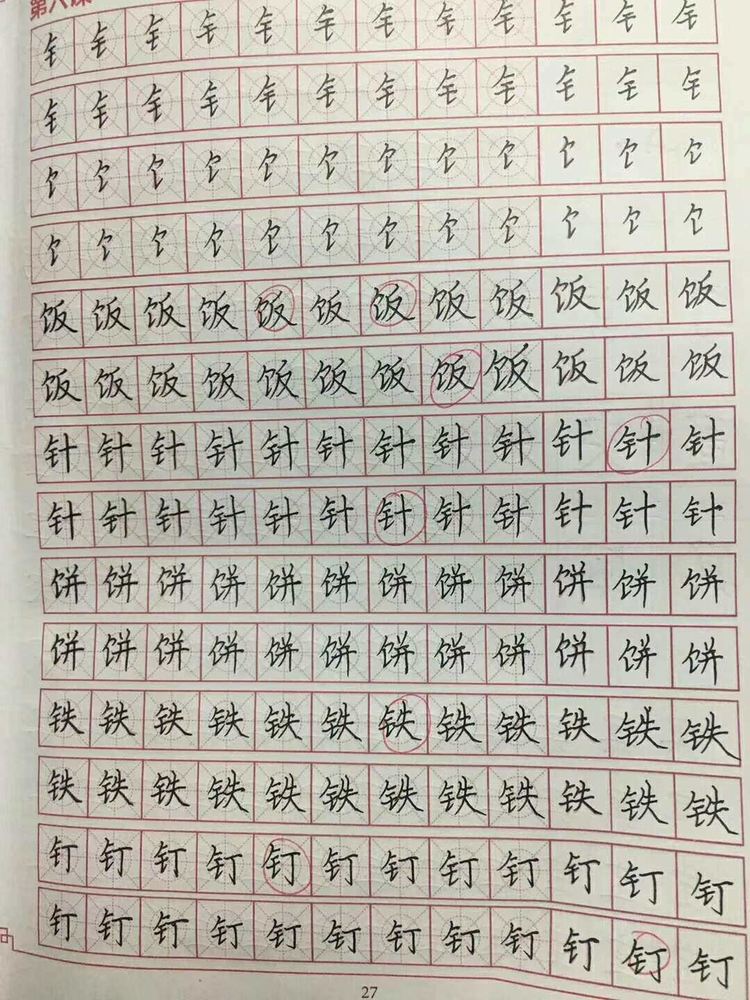 第六课
钅 钅 钅 钅 钅 钅 钅 钅 钅 钅 钅 钅
钅 钅 钅 钅 钅 钅 钅 钅 钅 钅 钅 钅
饣 饣 饣 饣 饣 饣 饣 饣 饣 饣 饣 饣
饣 饣 饣 饣 饣 饣 饣 饣 饣 饣 饣 饣
饭 饭 饭 饭 饭 饭 饭 饭 饭 饭 饭 饭
饭 饭 饭 饭 饭 饭 饭 饭 饭 饭 饭 饭
针 针 针 针 针 针 针 针 针 针 针 针
针 针 针 针 针 针 针 针 针 针 针 针
饼 饼 饼 饼 饼 饼 饼 饼 饼 饼 饼 饼
饼 饼 饼 饼 饼 饼 饼 饼 饼 饼 饼 饼
铁 铁 铁 铁 铁 铁 铁 铁 铁 铁 铁 铁
铁 铁 铁 铁 铁 铁 铁 铁 铁 铁 铁 铁
钉 钉 钉 钉 钉 钉 钉 钉 钉 钉 钉 钉
钉 钉 钉 钉 钉 钉 钉 钉 钉 钉 钉 钉
27